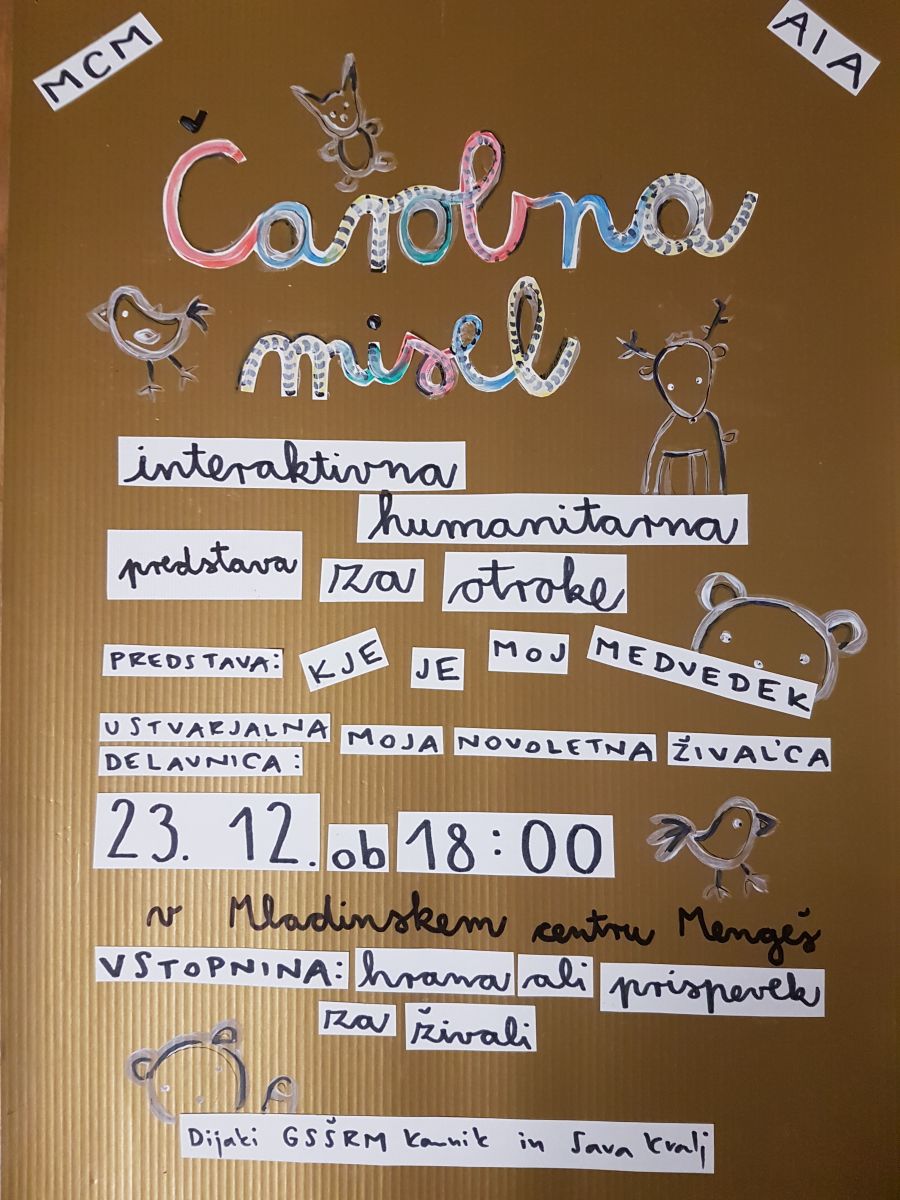 MCM
AIA
Čarobna
misel
interaktivna
humanitarna
predstava za otroke
PREDSTAVA: KJE JE MOJ MEDVEDEK
USTVARJALNA
DELAVNICA: MOJA NOVOLETNA ŽIVAL'CA
23. 12. ob 18:00
v Mladinskem centru Mengeš
VSTOPNINA: hrana ali prispevek
za živali
Dijaki GSŠRM Kamnik in Sava Kralj